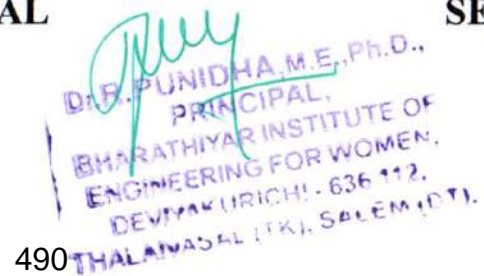 AL
SE
Dr.R.PUNIDHA,M.E.,Ph.D.,
PRINCIPAL,
BHARATHIYAR INSTITUTE OF
ENGINEERING FOR WOMEN,
DEVIYAKURICHI - 636 112,
THALAIVASAL (TK), SALEM (DT).
490